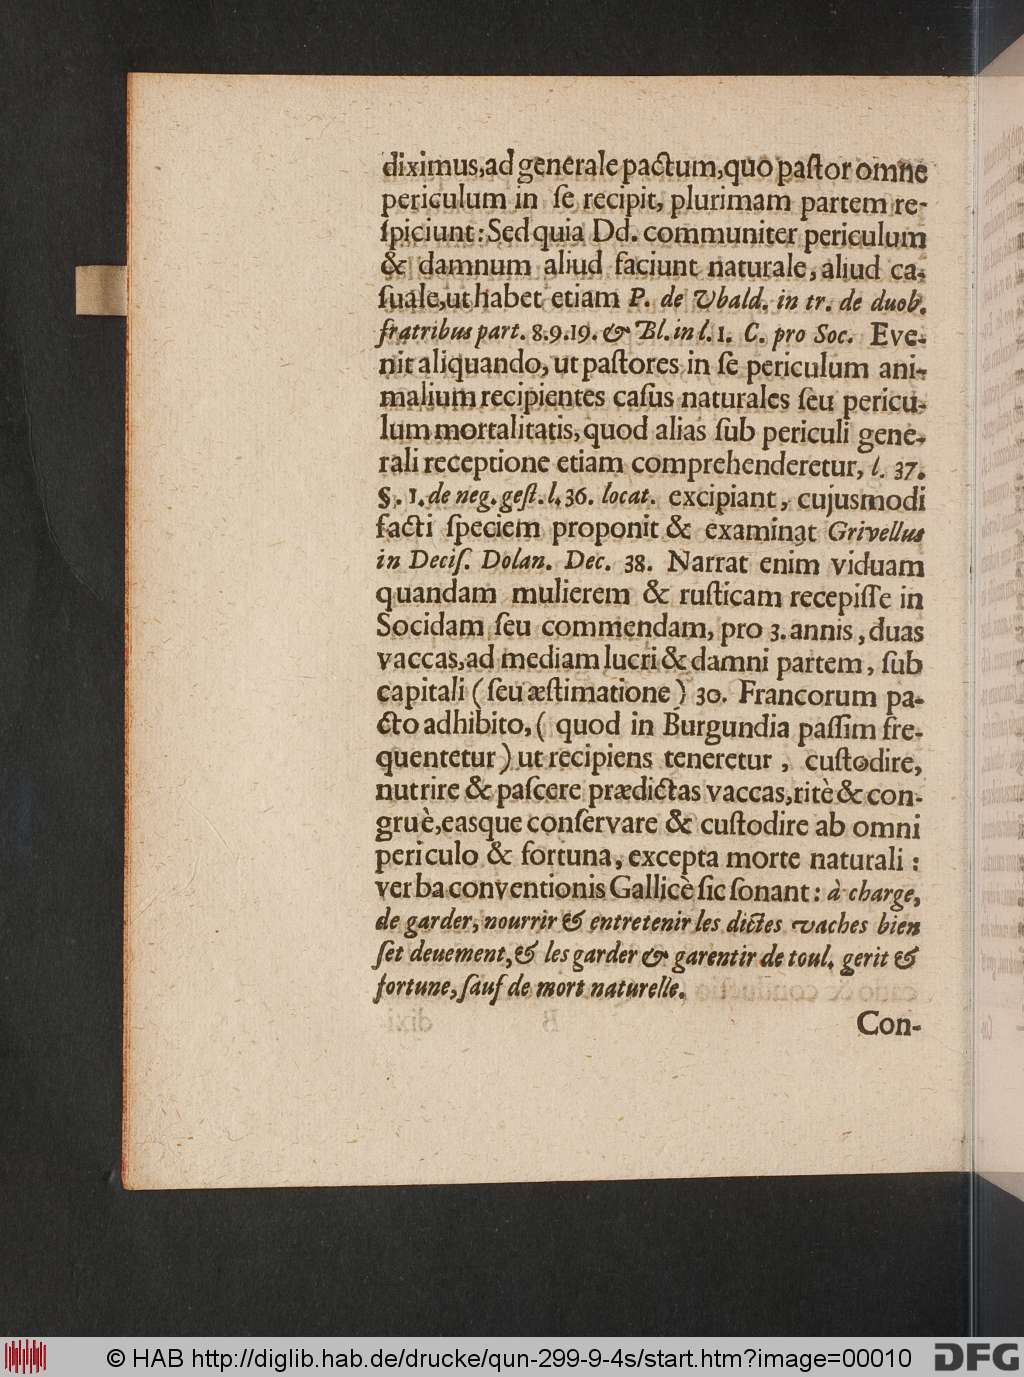 diximus, ad generale pactum, quo paſtor omne
periculum in ſe recipit, plurimam partem re-
ſpiciunt: Sed quia Dd. communiter periculum
& damnum aliud faciunt naturale, aliud ca-
ſuale, ut habet etiam P. de Vbald. in tr. de duob.
fratribus part. 8.9.19. & Bl. in l. 1. C. pro Soc. Eve-
nit aliquando, ut paſtores in ſe periculum ani-
malium recipientes caſus naturales ſeu pericu-
lum mortalitatis, quod alias ſub periculi gene-
rali receptione etiam comprehenderetur, l. 37.
§. 1. de neg. geſt. l. 36. locat. excipiant, cujusmodi
facti ſpeciem proponit & examinat Grivellus
in Deciſ. Dolan. Dec. 38. Narrat enim viduam
quandam mulierem & ruſticam recepiſſe in
Socidam ſeu commendam, pro 3. annis, duas
vaccas, ad mediam lucri & damni partem, ſub
capitali (ſeu æſtimatione) 30. Francorum pa-
cto adhibito, (quod in Burgundia paſſim fre-
quentetur) ut recipiens teneretur, cuſtodire,
nutrire & paſcere prædictas vaccas, ritè & con-
gruè, easque conſervare & cuſtodire ab omni
periculo & fortuna, excepta morte naturali:
verba conventionis Gallicè ſic ſonant: à charge,
de garder, nourrir & entretenir les dictes vaches bien
ſet deuement, & les garder & garentir de toul. gerit &
fortune, ſauf de mort naturelle.
Con-
© HAB http://diglib.hab.de/drucke/qun-299-9-4s/start.htm?image=00010
DFG